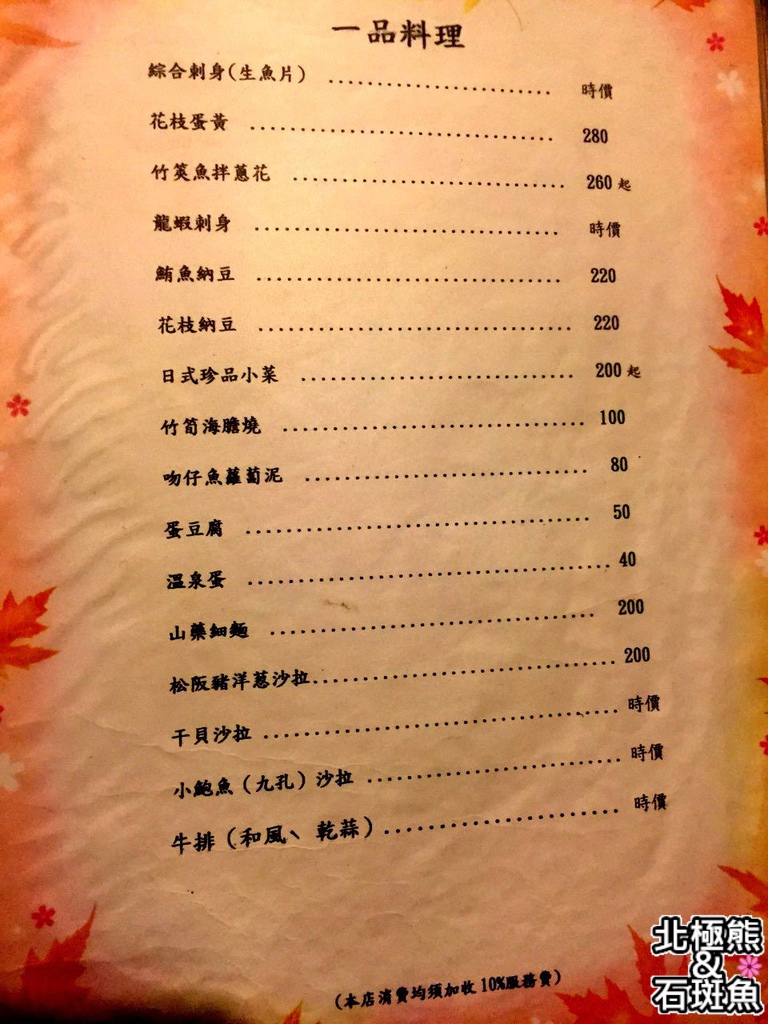 一品料理
綜合刺身(生魚片) ........................ 時價
花枝蛋黃 ................................ 280
竹筴魚拌蔥花 ............................ 260起
龍蝦刺身 ................................ 時價
鮪魚納豆 ................................ 220
花枝納豆 ................................ 220
日式珍品小菜 ............................ 200起
竹筍海膽燒 .............................. 100
吻仔魚蘿蔔泥 ............................ 80
蛋豆腐 .................................. 50
溫泉蛋 .................................. 40
山藥細麵 ................................ 200
松阪豬洋蔥沙拉 .......................... 200
干貝沙拉 ................................ 時價
小鮑魚(九孔)沙拉 ........................ 時價
牛排(和風、乾蒜) ........................ 時價
(本店消費均須加收10%服務費)
北極熊
&
石斑魚